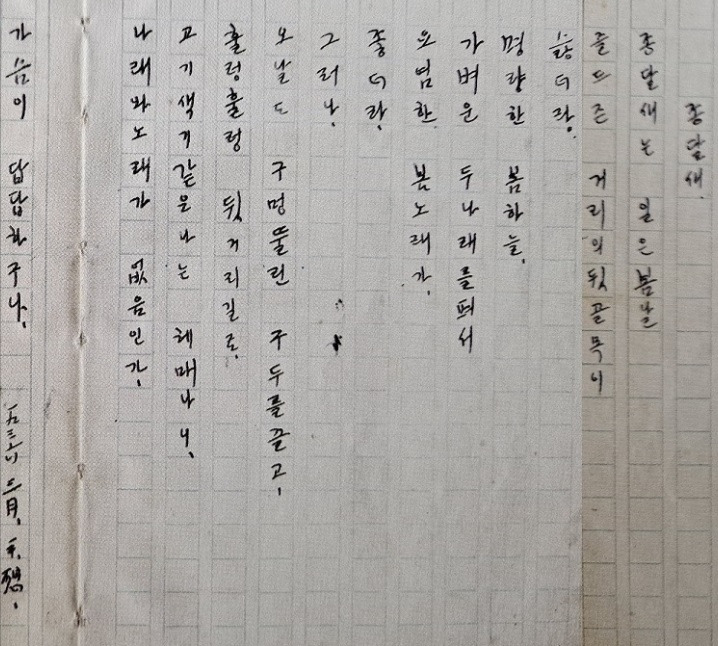 종달새.
종달새는 일은 봄날
즐드즌 거리의 뒷골목이
싫더라.
명랑한 봄하늘,
가벼운 두나래를펴서
요염한 봄노래가
좋더라,
그러나,
오날도 구멍뚤린 구두를끌고,
훌렁훌렁 뒷거리길로,
고기색기같은나는 헤매나니,
나래와노래가 없음인가,
가슴이 답답하구나,
三月,